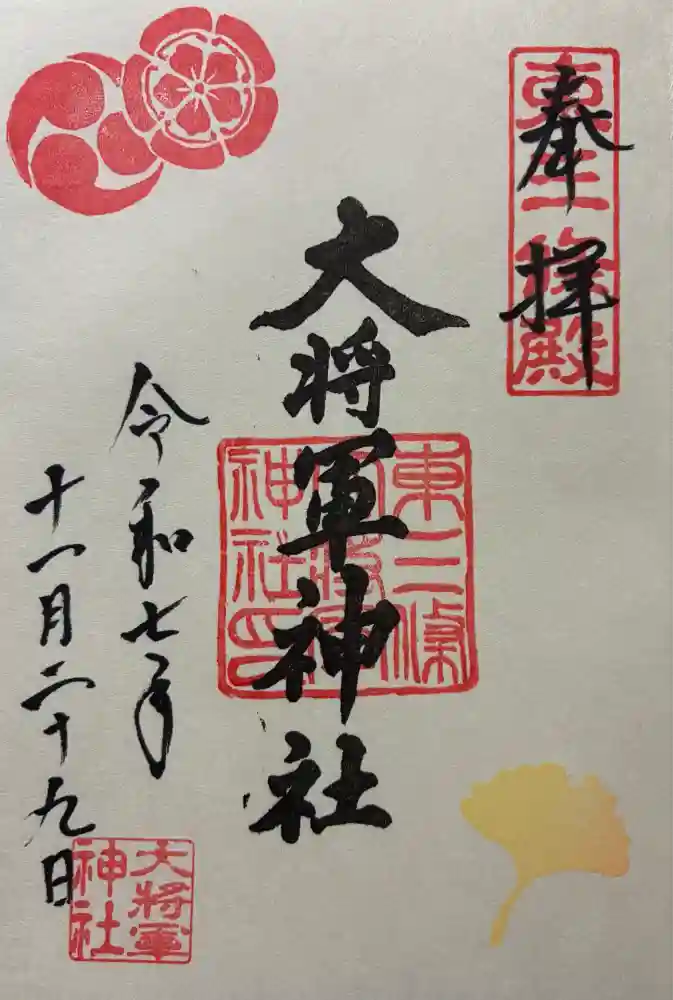 奉拝
東三條殿
大将軍神社
東三條大将軍神社印
令和七年
十一月二十九日
大将軍神社